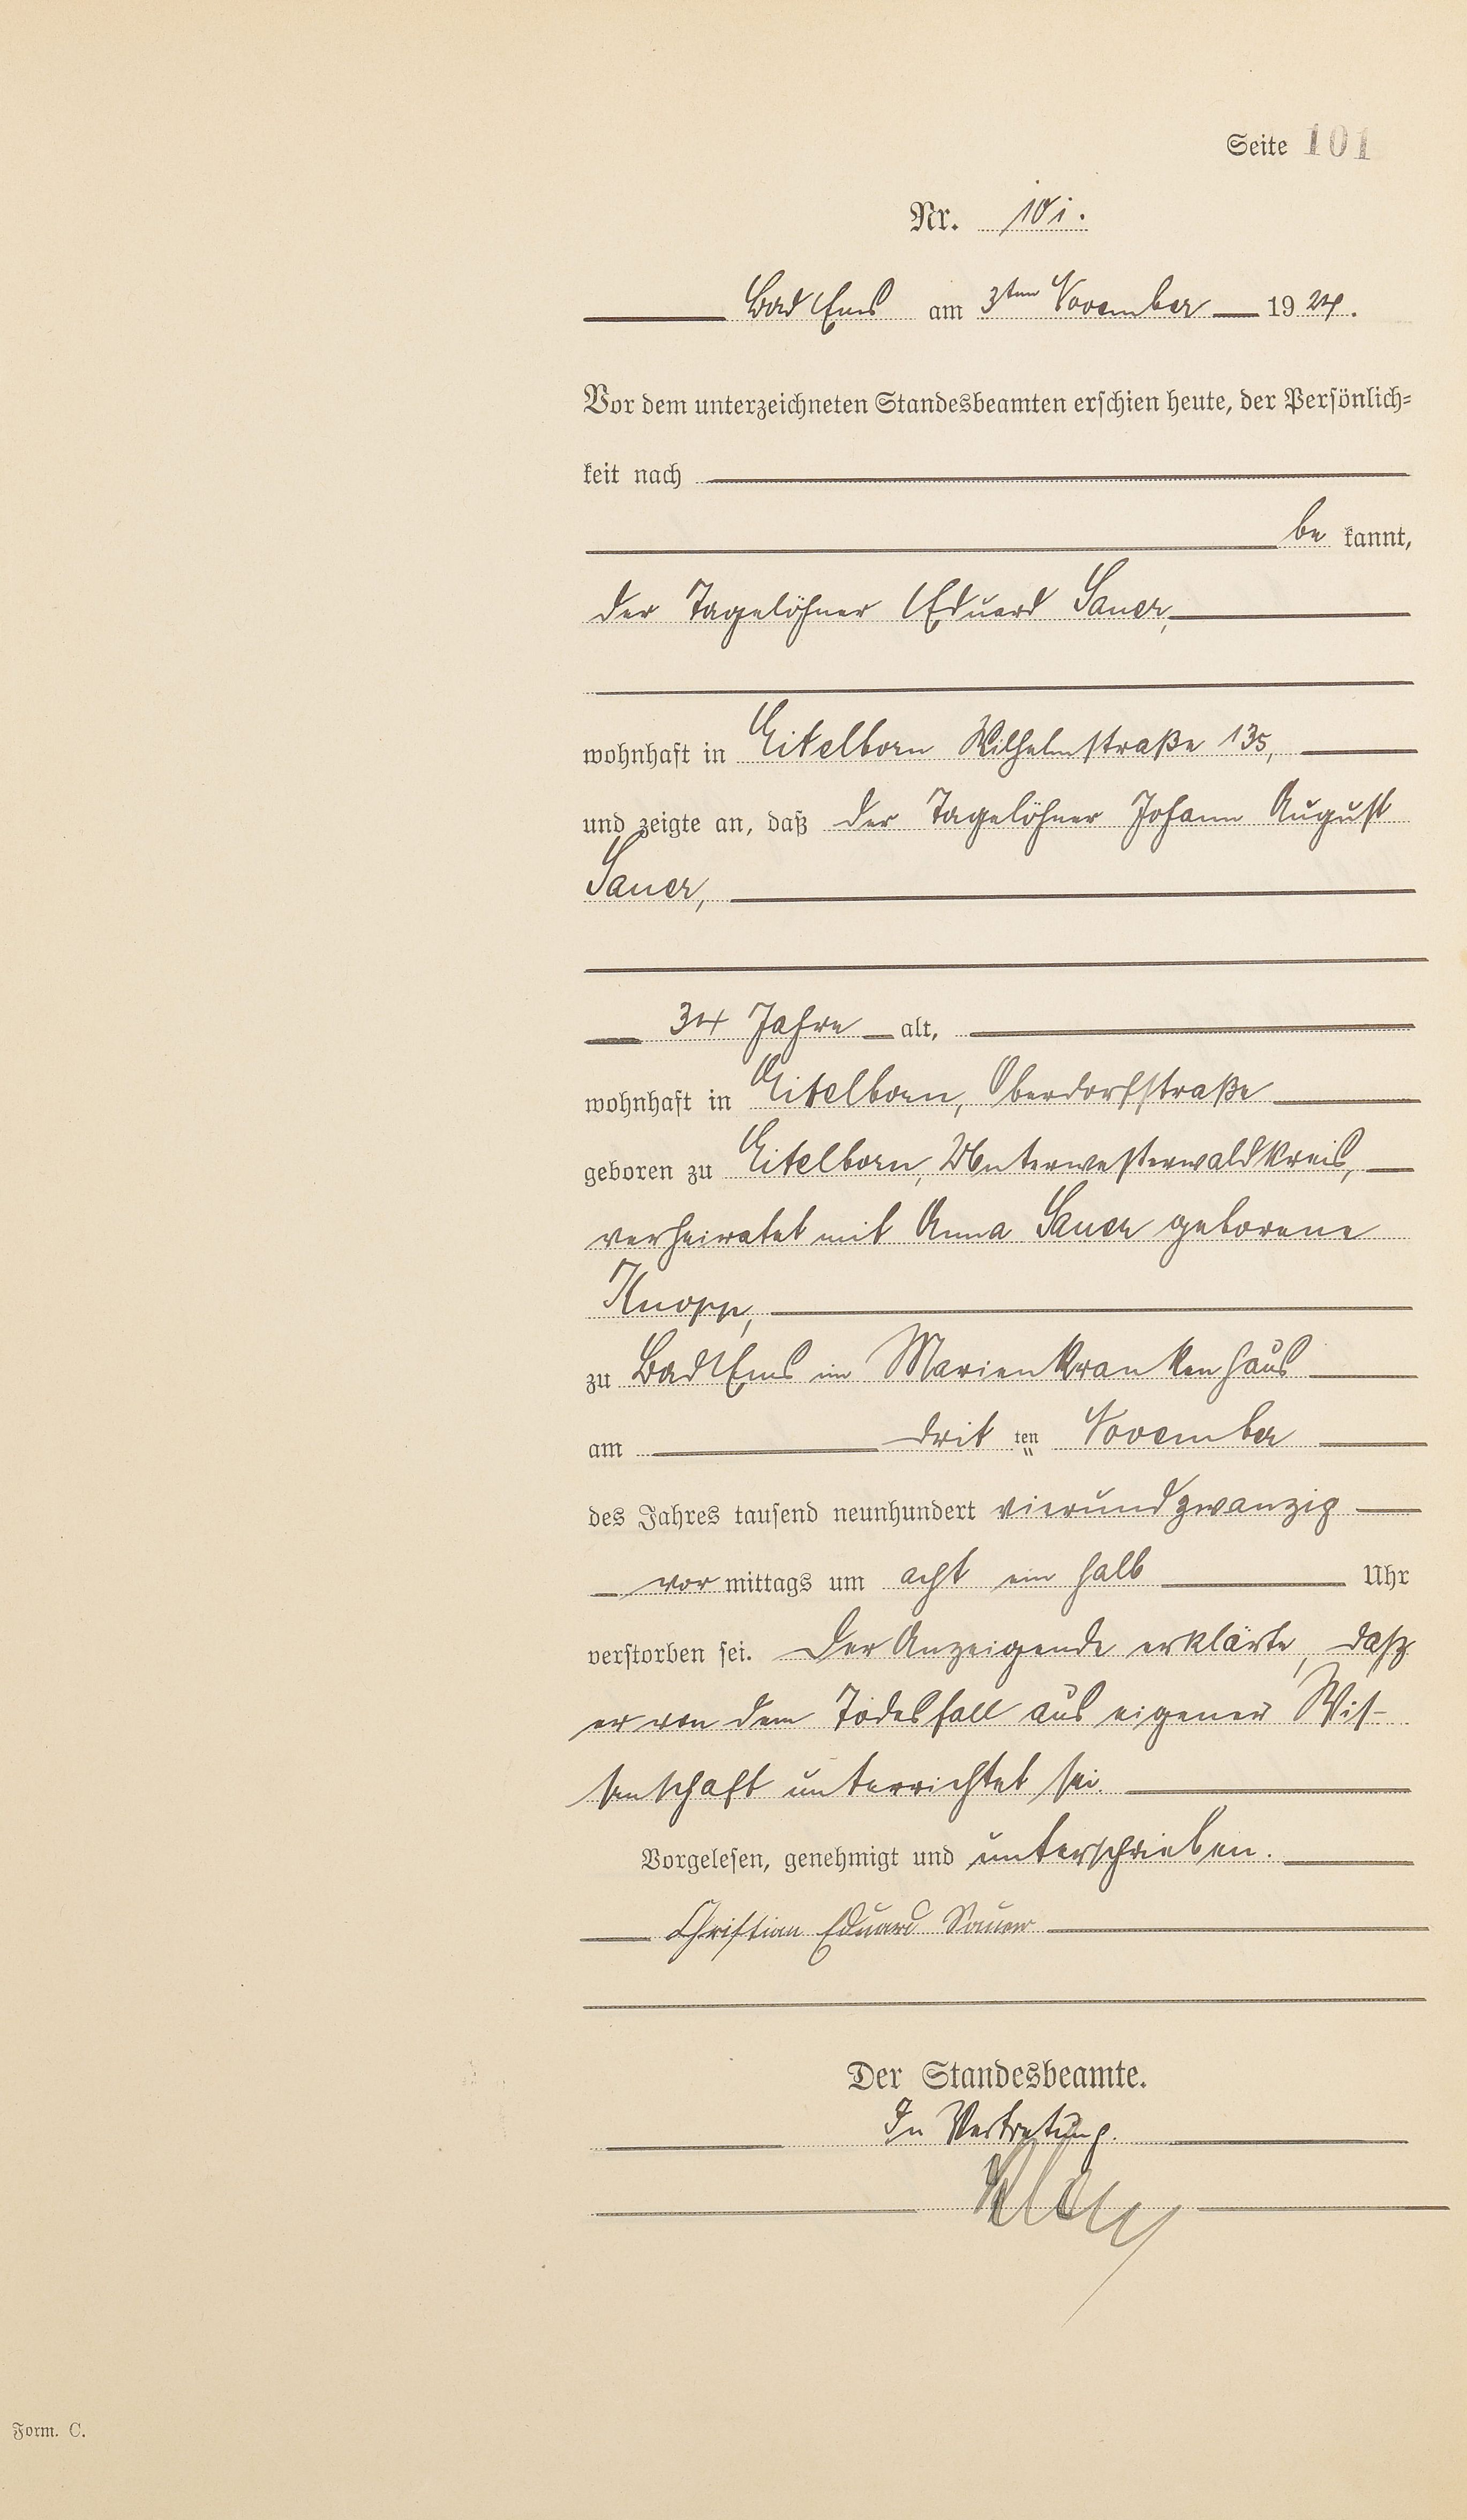 Seite 101
Nr. 101.
Bad Ems am 3ten November 1924.
Vor dem unterzeichneten Standesbeamten erschien heute, der Persönlich=
keit nach
be kannt,
der Tagelöhner Eduard Sauer,
wohnhaft in Eitelborn Wilhelmstraße 135,
und zeigte an, daß der Tagelöhner Johann August
Sauer,
34 Jahre alt,
wohnhaft in Eitelborn, Oberdorfstraße
geboren zu Eitelborn, Unterwesterwaldkreis,
verheiratet mit Anna Sauer geborene
Knopp,
zu Bad Ems im Marienkrankenhaus
am drit ten November
des Jahres tausend neunhundert vierundzwanzig
vor mittags um acht ein halb Uhr
verstorben sei. Der Anzeigende erklärte, daß
er von dem Todesfall aus eigener Wis-
senschaft unterrichtet sei.
Vorgelesen, genehmigt und unterschrieben.
Christian Eduard Sauer
Der Standesbeamte.
In Vertretung.
Form. C.